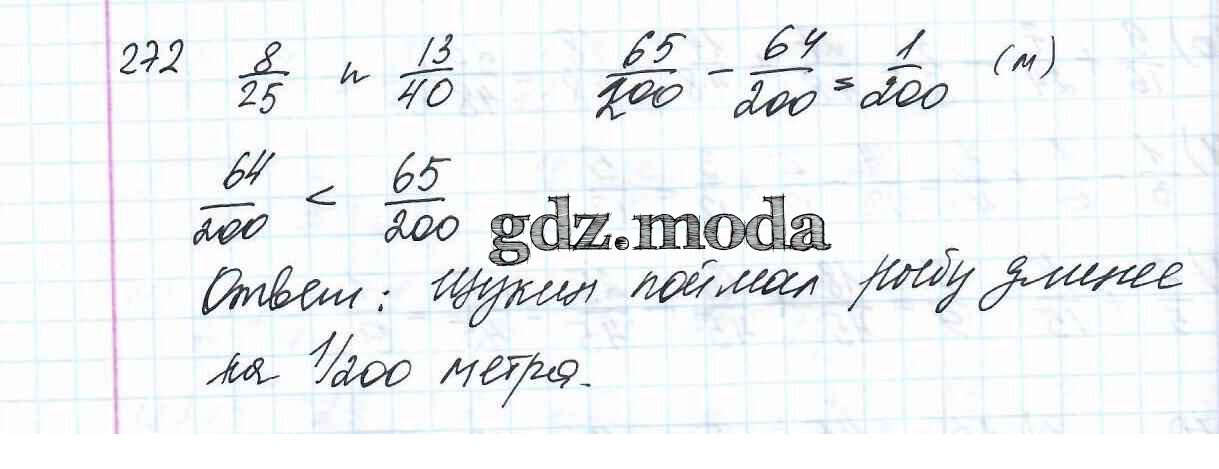 272 8/25 и 13/40 65/200 - 64/200 = 1/200 (м)
64/200 < 65/200
gdz.moda
Ответ: Щукин поймал рыбу длинее
на 1/200 метра.